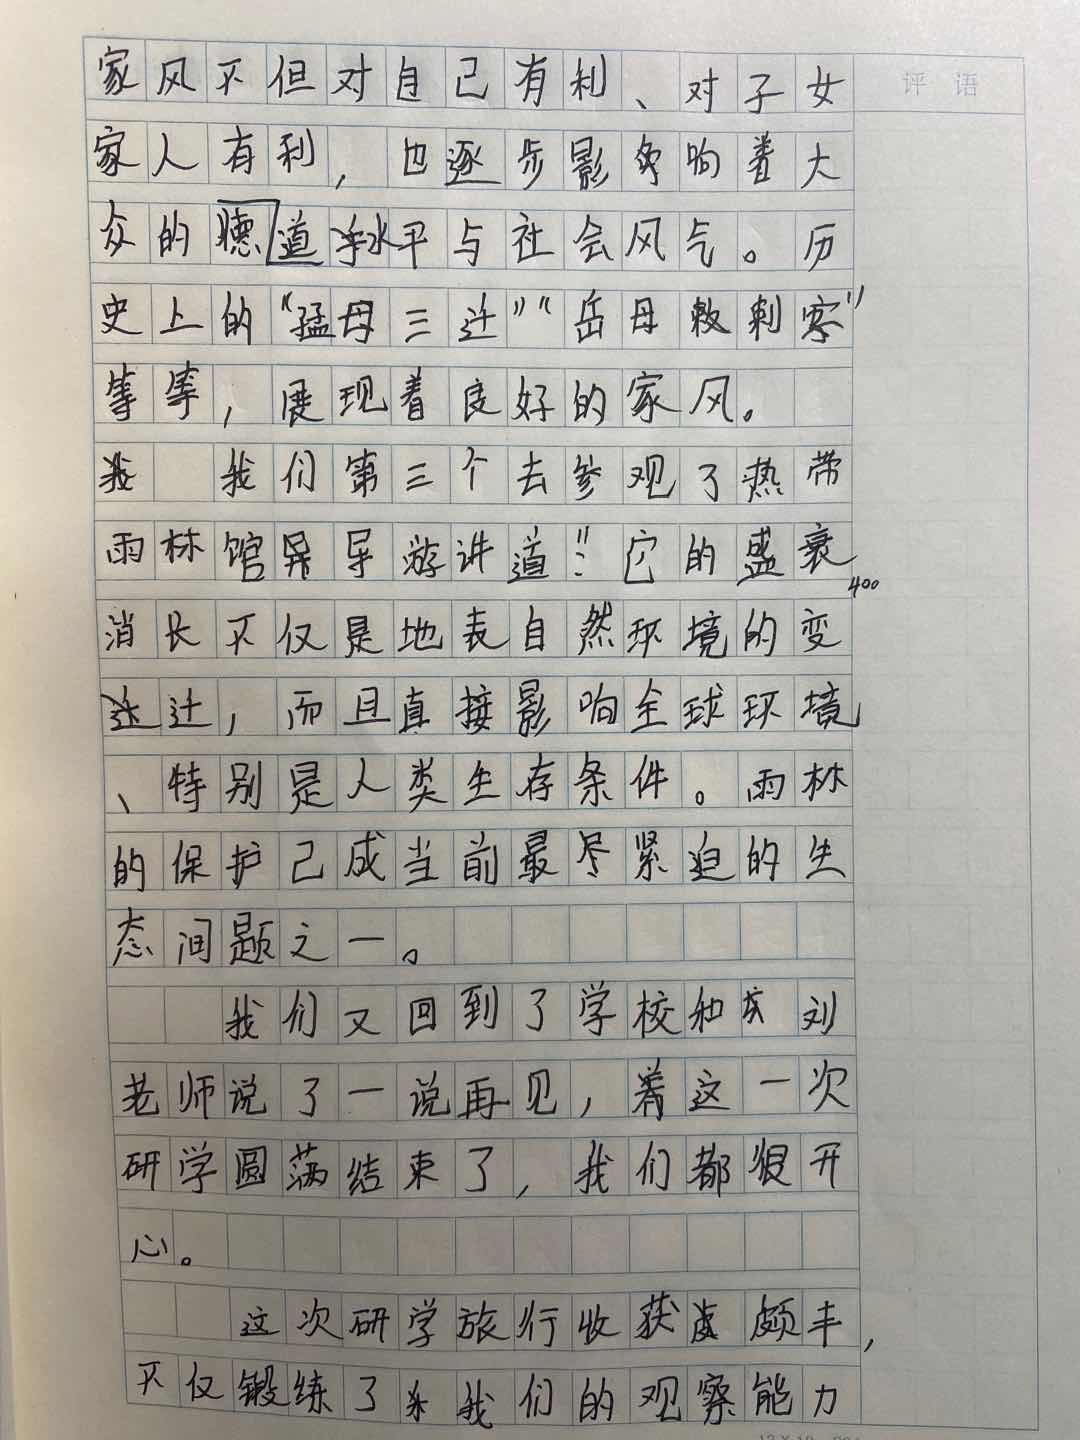 家风不但对自己有利、对子女
评语
家人有利，也逐步影响着大
众的德道水平与社会风气。历
史上的“孟母三迁”“岳母刺字”
等等，展现着良好的家风。
我们第三个去参观了热带
雨林馆导游讲道：“它的盛衰
400
消长不仅是地表自然环境的变
迁，而且直接影响全球环境
、特别是人类生存条件。雨林
的保护己成当前最尽紧迫的生
态问题之一。
我们又回到了学校和刘
老师说了一说再见，着这一次
研学圆满结束了，我们都很开
心。
这次研学旅行收获颇丰，
不仅锻练了我们的观察能力